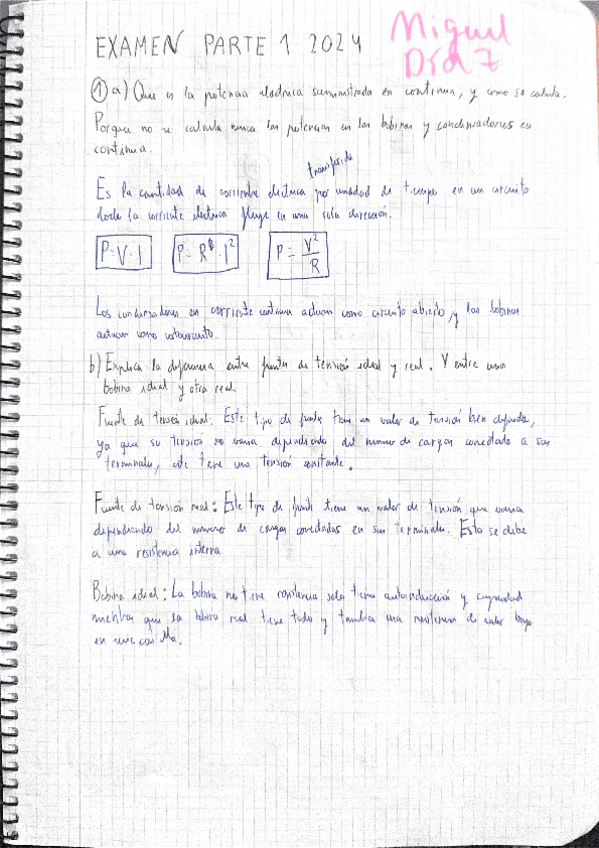 EXAMEN PARTE 1 2024
Miguel
Díaz
① a) Que es la potencia electrica suministrada en continua, y como se calcula.
Porque no se calcula nunca las potencias en las bobinas y condensadores en
continua.
transferida
Es la cantidad de corriente electrica por unidad de tiempo en un circuito
donde la corriente electrica fluye en una sola dirección.
P=V·I P=R·I² P=V²/R
Los condensadores en corriente continua actuan como circuito abierto, y las bobinas
actuan como cortocircuito.
b) Explica la diferencia entre fuentes de tensión ideal y real. Y entre una
bobina ideal y otra real.
Fuente de tensión ideal: Este tipo de fuente tiene un valor de tensión bien definida,
ya que su tensión no varia dependiendo del numero de cargas conectado a sus
terminales, este tiene una tensión constante.
Fuente de tensión real: Este tipo de fuente tiene un valor de tensión que varia
dependiendo del numero de cargas conectadas en sus terminales. Esto se debe
a una resistencia interna
Bobina ideal: La bobina no tiene resistencia solo tiene autoinducción y capacidad
mientras que la bobina real tiene todo y tambien una resistencia de valor bajo
en serie con